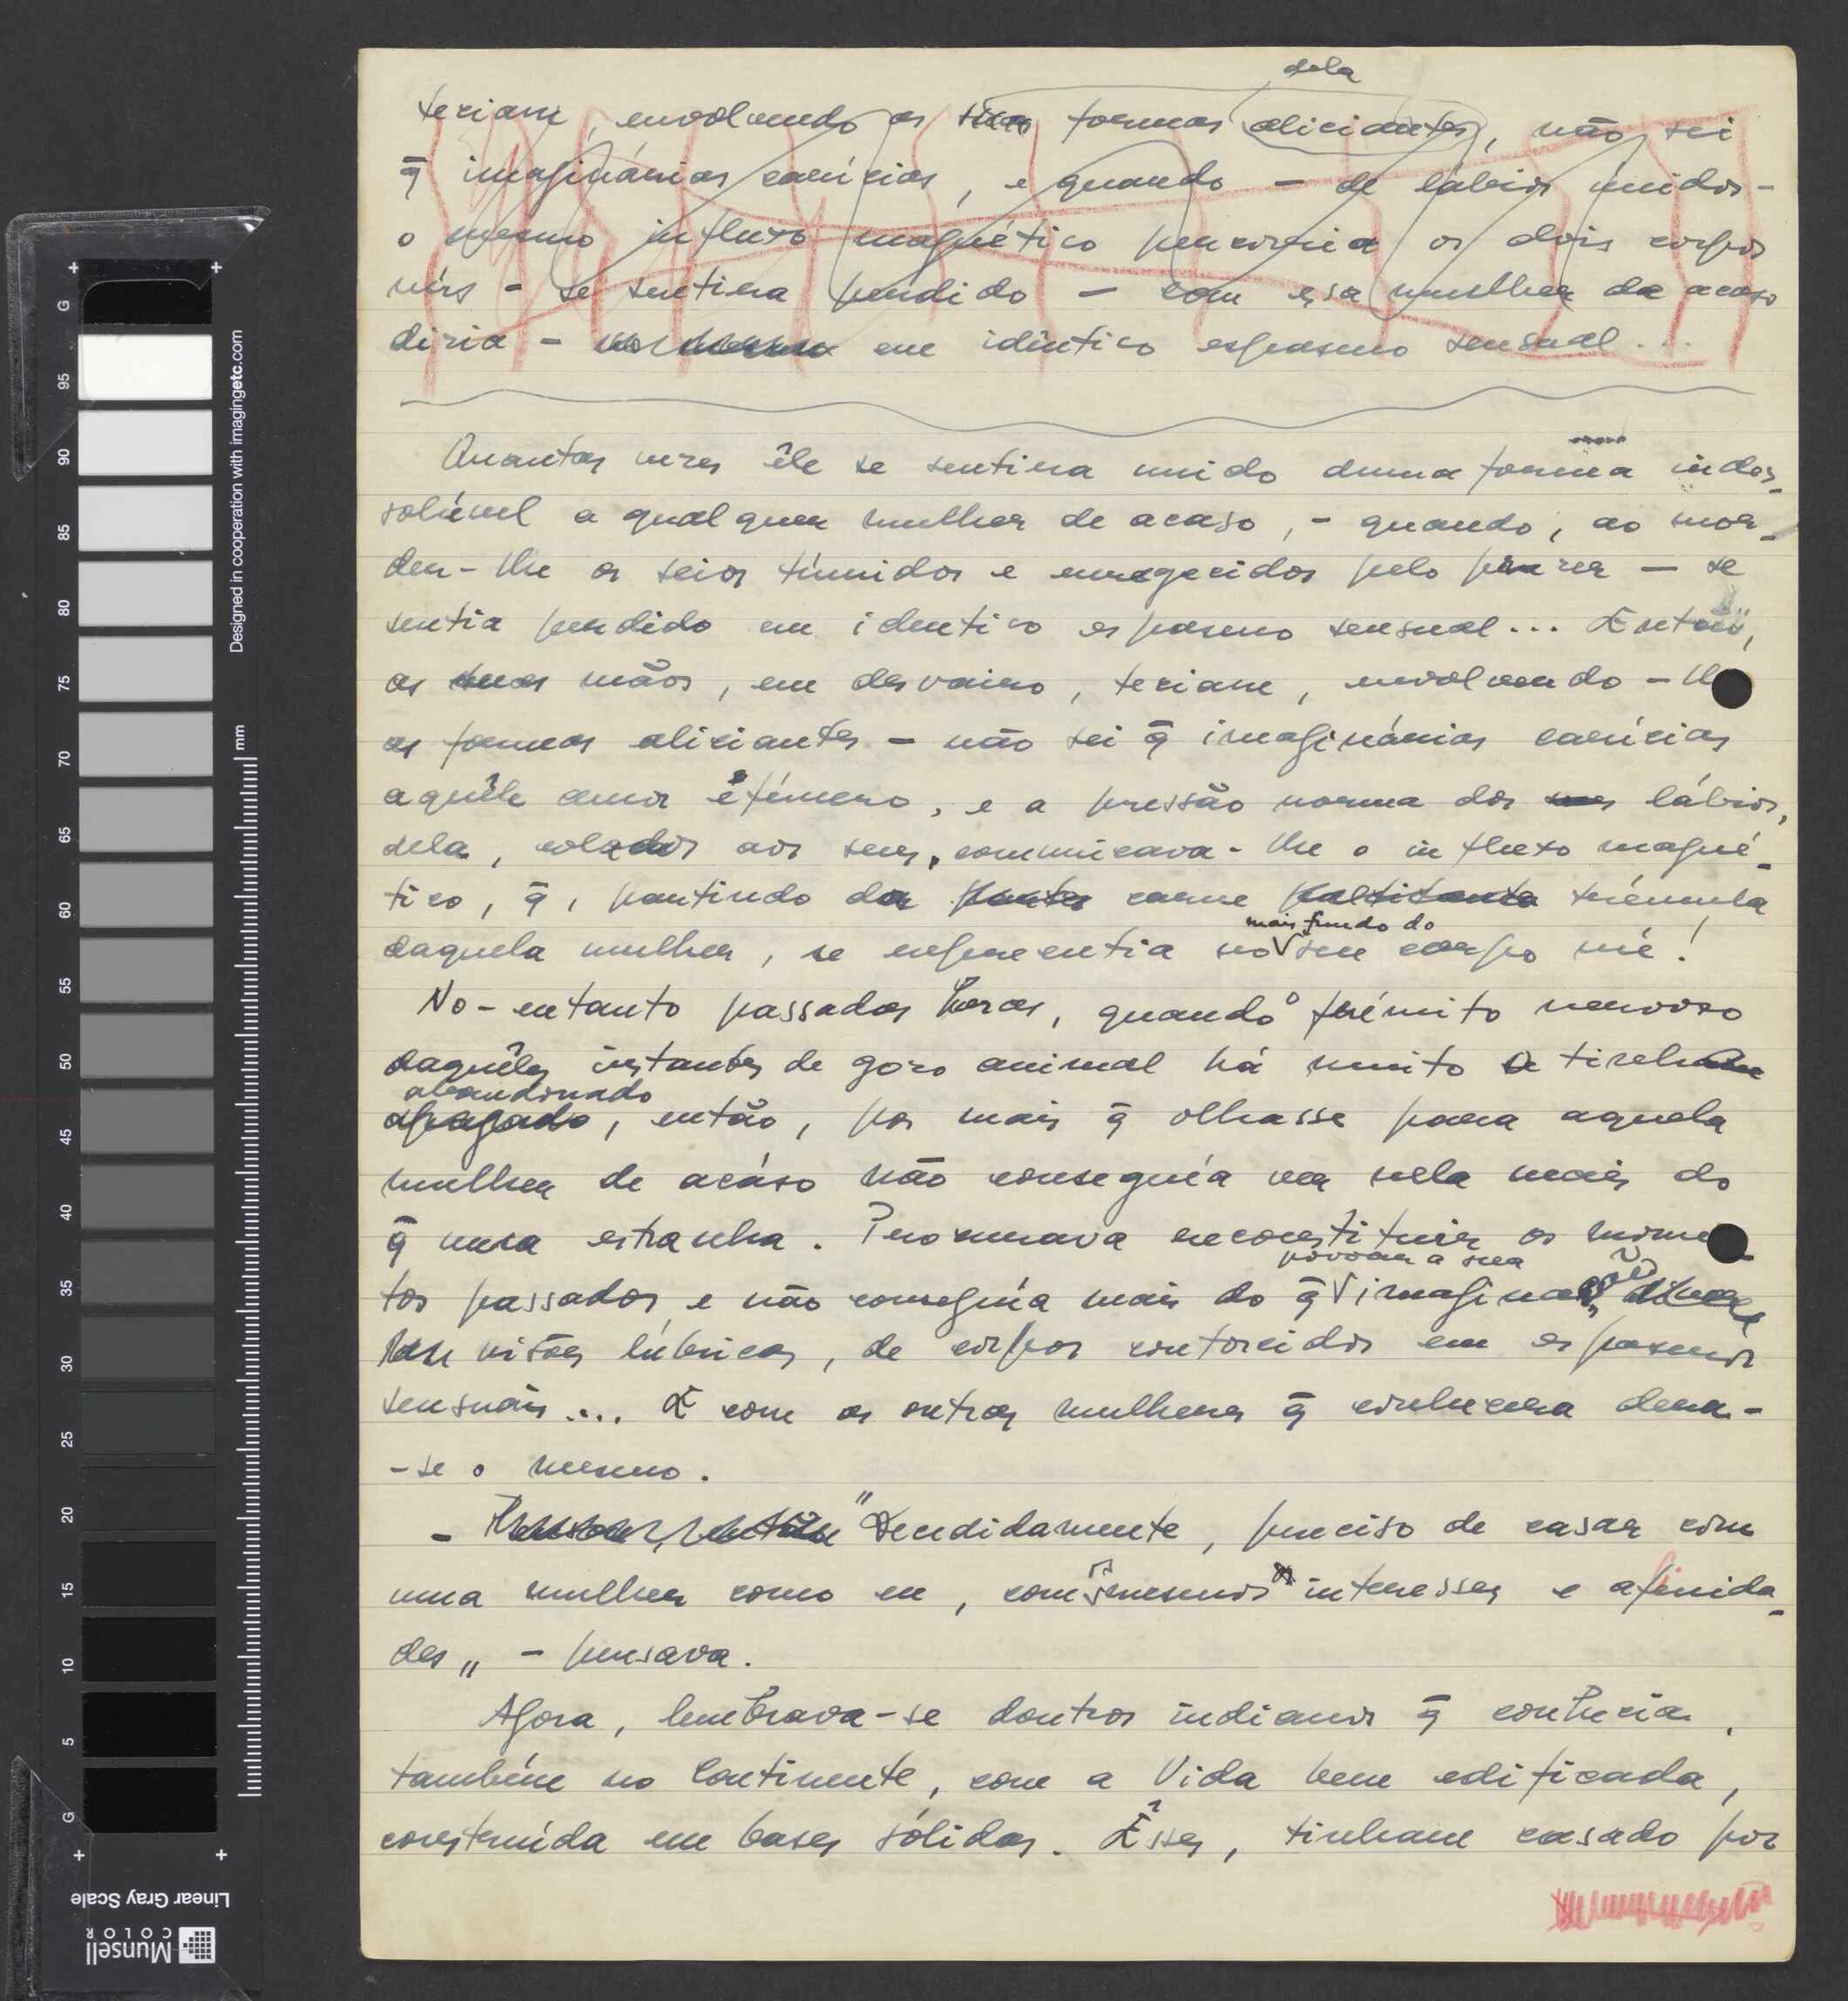 dela
teciam, envolvendo as suas formas aliciantes, não sei
q̃ imaginárias carícias, e quando – de lábios unidos –
o mesmo influxo magnético percorria os dois corpos
nús – se sentira perdido – com essa mulher de acaso
diria – no mesmo em idêntico espasmo sensual...
Quantas vezes êle se sentira unido duma forma indes-
solúvel a qualquer mulher de acaso, – quando, ao mor-
der-lhe os seios túmidos e enrigecidos pelo prazer – se
sentia perdido em identico espasmo sensual... Então,
as suas mãos, em desvairo, teciam, envolvendo-lh
as formas aliciantes – não sei q̃ imaginárias carícias
aquêle amor efémero, e a pressão morna dos seus lábios,
dela, colados aos seus, comunicava-lhe o influxo magné-
tico, q̃, partindo da carne palpitante trémula
mais fundo do
daquela mulher, se repercutia no seu corpo nú!
No-entanto passadas horas, quando o frémito nervoso
daquêles instantes de gozo animal há muito o tinham
abandonado
apagado, então, por mais q̃ olhasse para aquela
mulher de acáso não conseguía ver nela mais do
q̃ uma estranha. Procurava reconstituir os momen
povoar a sua
tos passados e não conseguía mais do q̃ imaginação
visões lúbricas, de corpos contorcidos em espasmos
sensuais.... E com as outras mulheres q̃ conhecera dera-
-se o mesmo.
– Pensou, então "Decididamente, preciso de casar com
uma mulher como eu, com mesmos interesses e afinida-
des" – pensava.
Agora, lembrava-se doutros indianos q̃ conhecia,
também no Continente, com a Vida bem edificada,
construída em bases sólidas. Êsses, tinham casado por
Designed in cooperation with imagingetc.com
mm
G
95
90
85
80
75
70
65
60
55
50
45
40
35
30
25
20
15
10
5
G
Linear Gray Scale
Munsell
COLOR